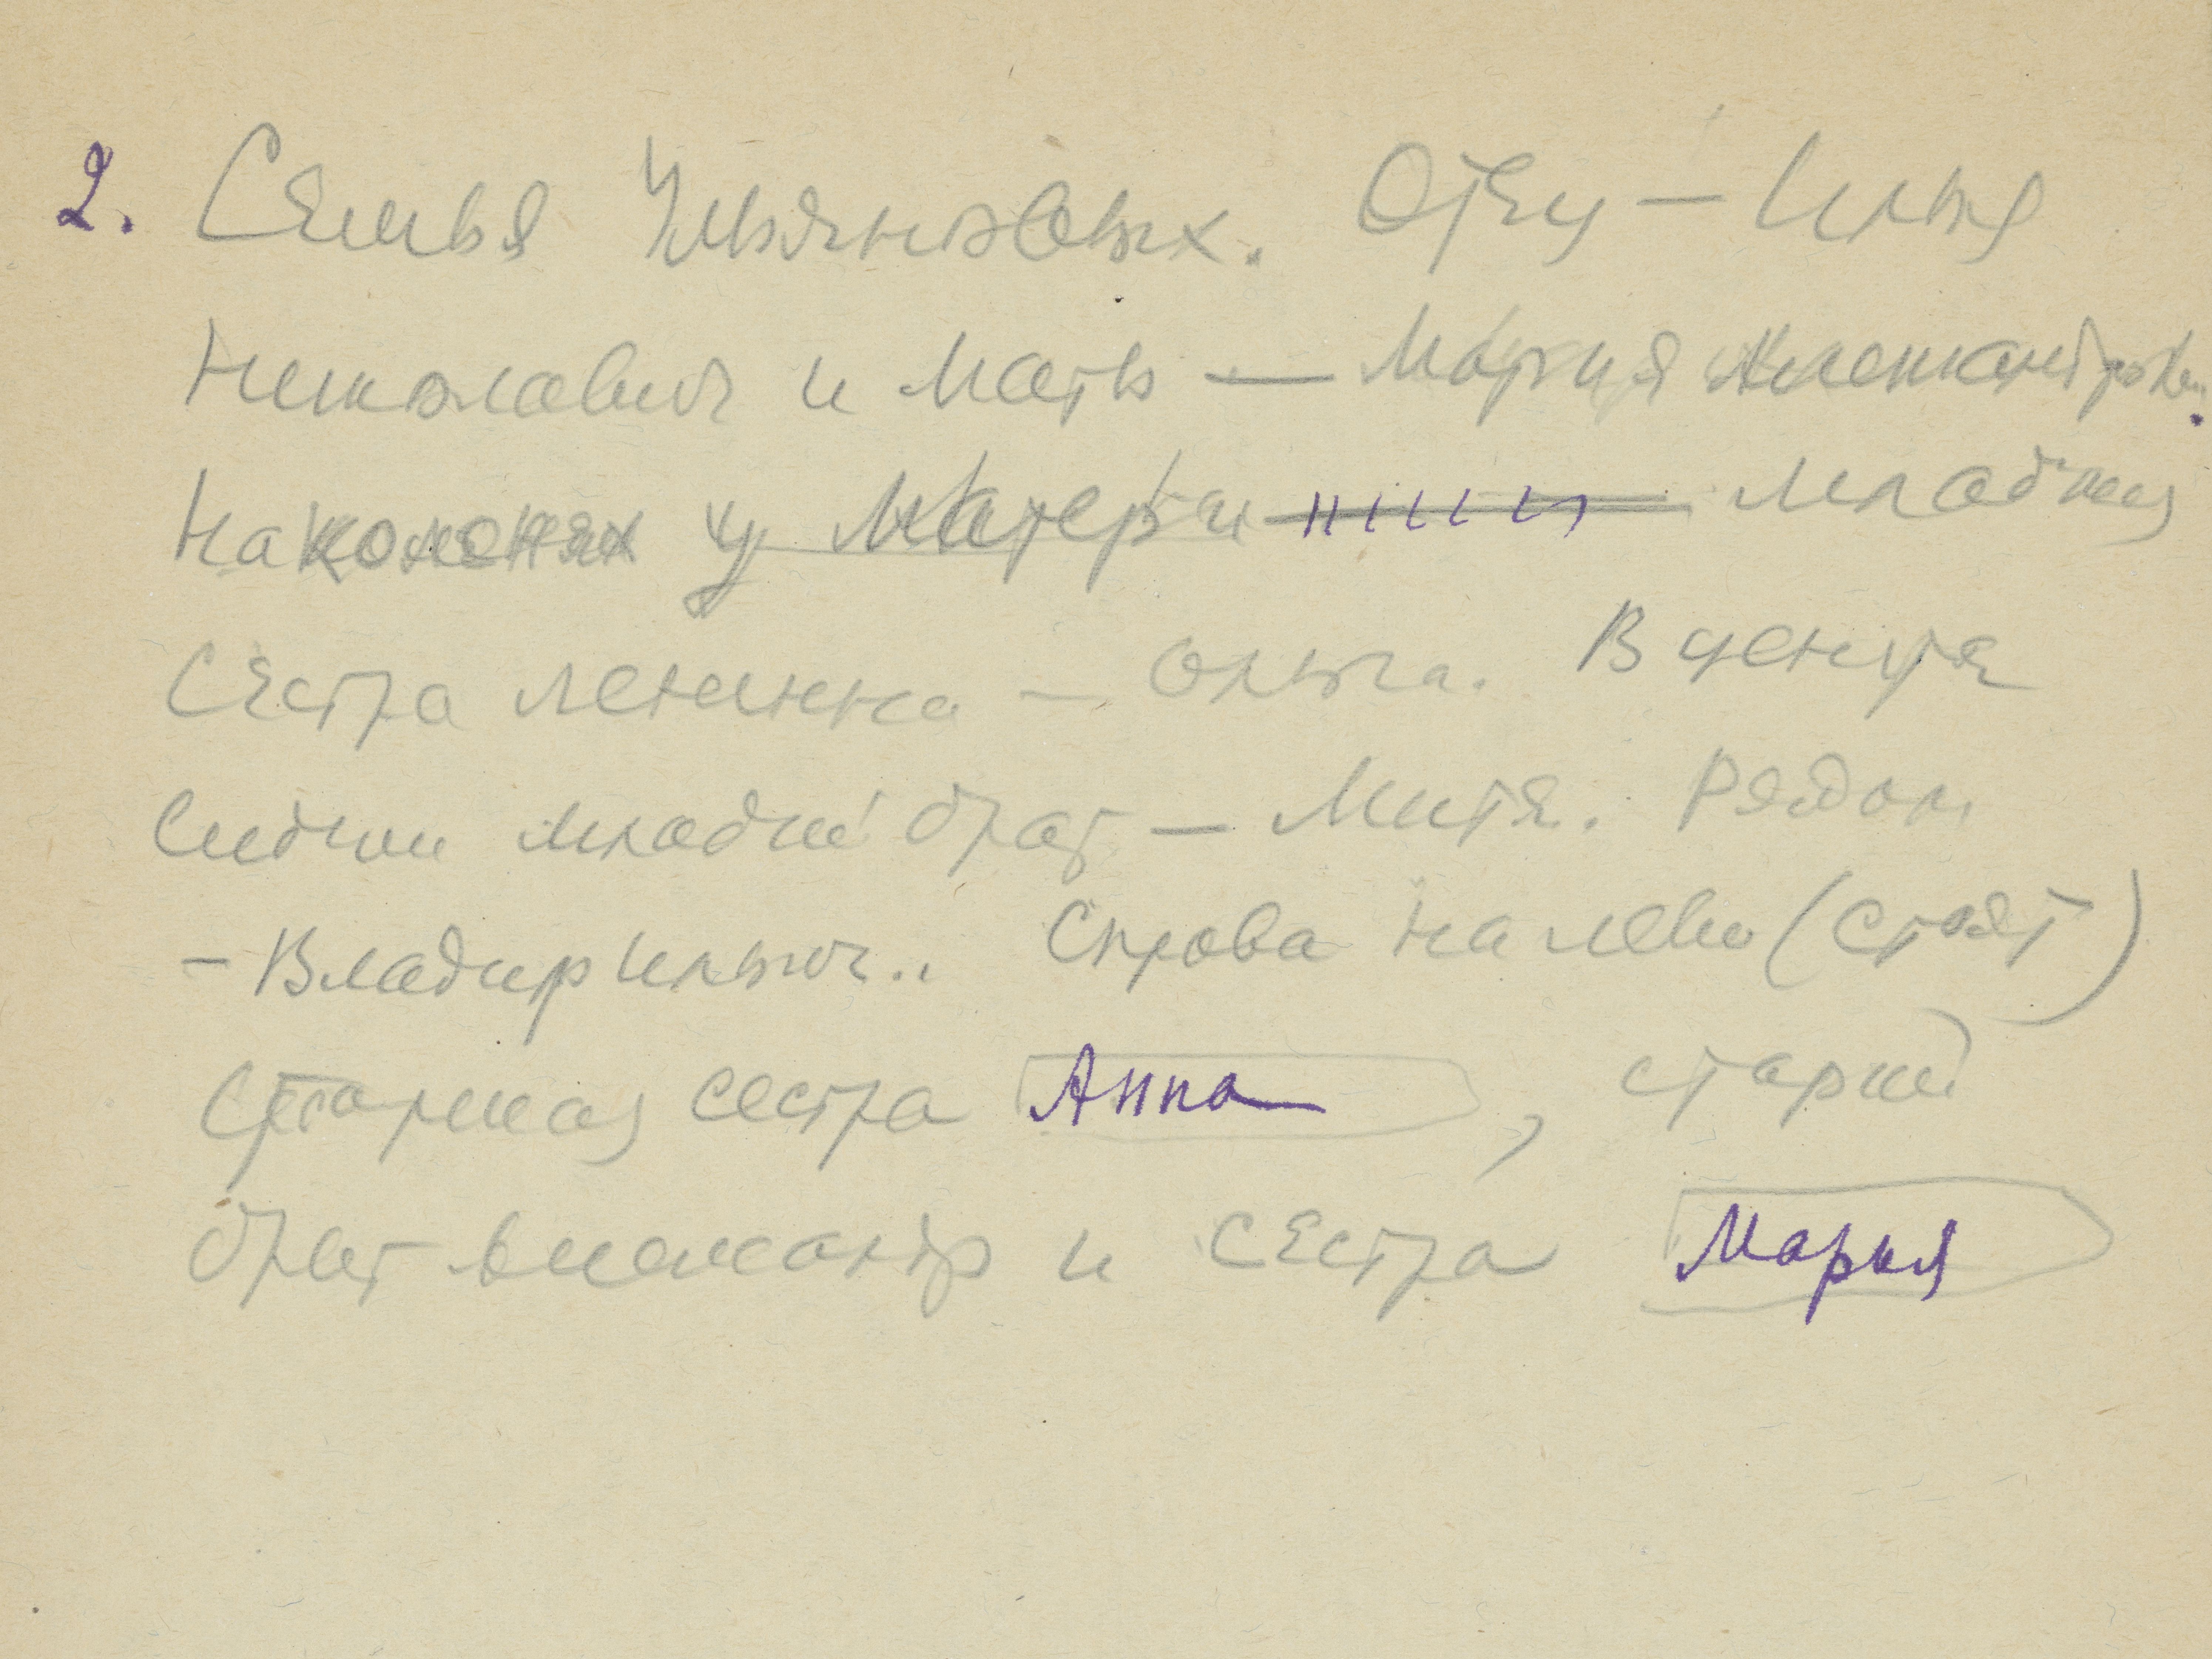 2. Семья Ульяновых. Отец — Илья
Николаевич и мать — Мария Александровн.
На коленях у матери младшая
Сестра Ленина — Ольга. В центре
Сидит младший брат — Митя. Рядом
— Владимир Ильич.. Справа на лево (стоят)
Старшая сестра Анна, старший
брат Александр и сестра Мария